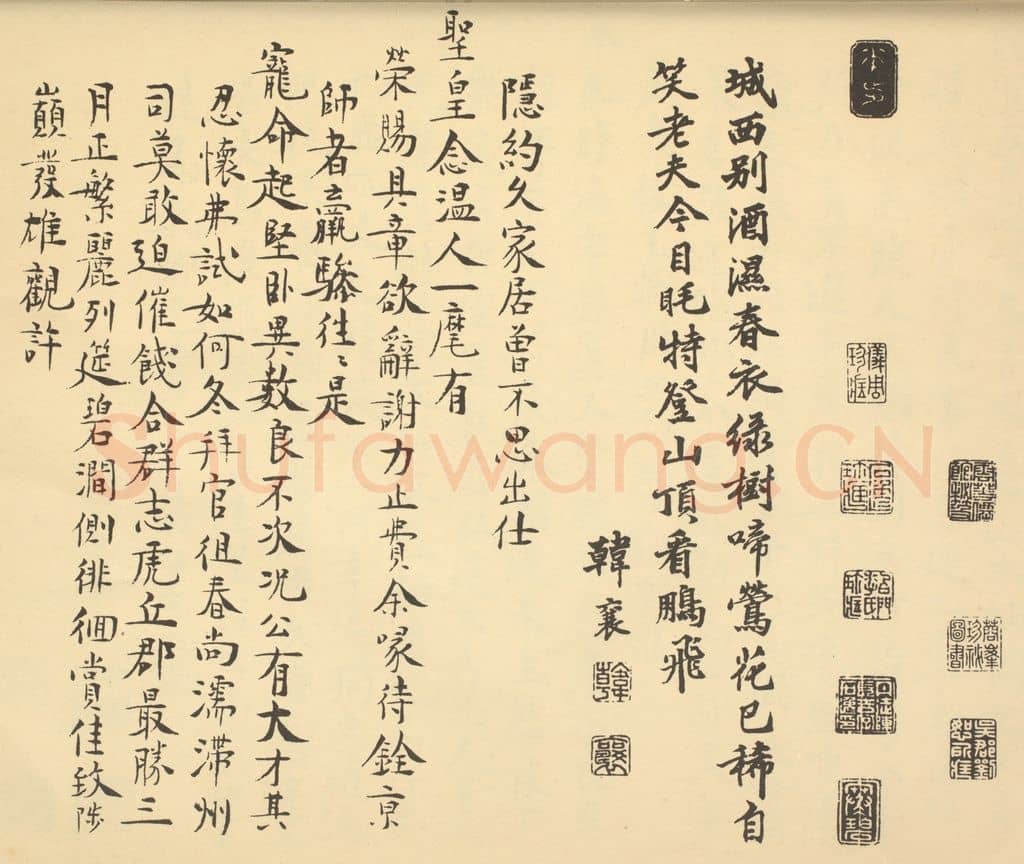 城西别酒濕春衣綠樹啼鶯花已稀自
笑老夫今目眊特登山頂看鵬飛
韓襄
隱約久家居曾不思出仕
聖皇念温人一麾有
榮賜具章欲辭謝力止費余喙待銓京
師者羸驂徃〻是
寵命起堅卧異數良不次况公有大才其
忍懷弗試如何冬拜官徂春尚濡滞州
司莫敢迫催餞合群志虎丘郡最勝三
月正繁麗列筵碧澗側徘徊賞佳致陟
巔發雄觀許
Shufawang.CN